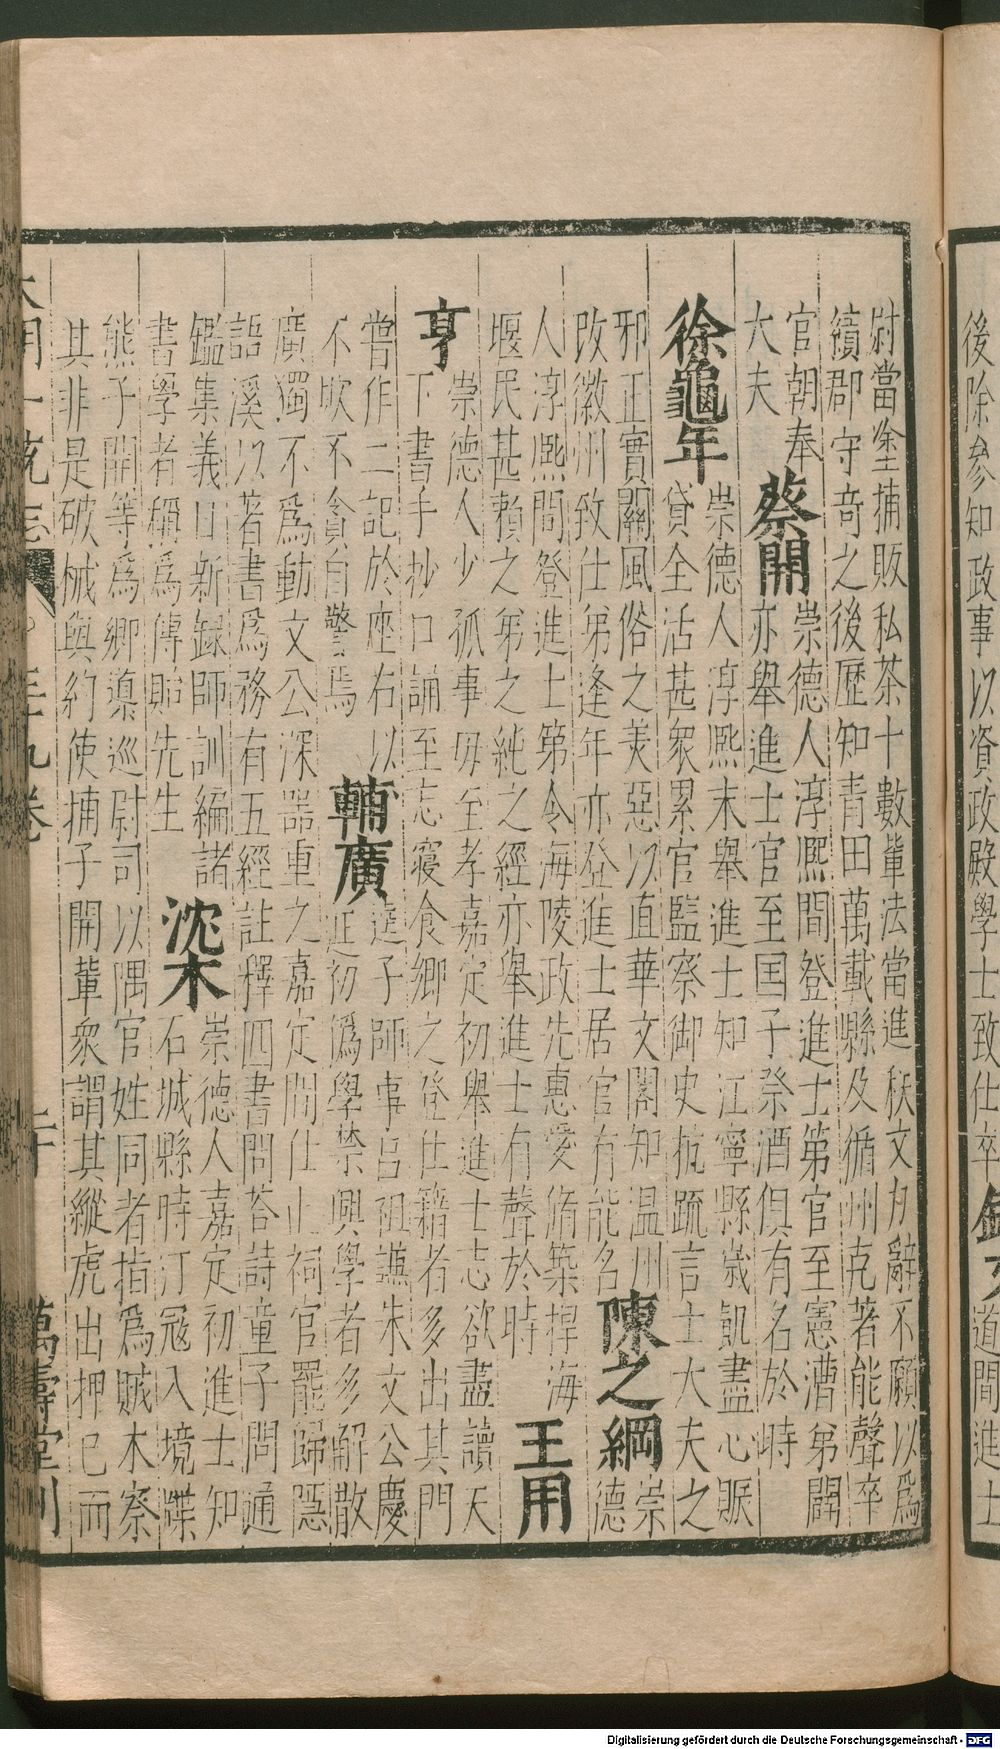 後除參知政事以資政殿學士致仕卒
道間進士
尉當塗捕販私茶十數輩法當進秩文力辭不願以爲
績郡守奇之後歷知青田萬載縣及循州克著能聲卒
官朝奉
大夫
蔡開
崇德人淳熙間登進士第官至憲漕弟闢
亦舉進士官至国子祭酒但有名於時
徐龜年
崇德人淳熙末舉進士知江寧縣歲飢盡心賑
貸全活甚衆累官監察御史抗疏言士大夫之
邪正實關風俗之美惡以直華文閣知温州
改徽州致仕弟逢年亦登進士居官有能名
陳之綱
崇德
人淳熙間登進士第令海陵政先惠愛脩築捍海
堰民甚賴之弟之純之經亦舉進士有聲於時
王用
亨
崇德人少孤事母至孝嘉定初舉進士志欲盡讀天
下書手抄口誦至忘寢食鄉之登仕籍者多出其門
嘗作二記於座右以
不欺不貪自警焉
輔廣
達子師事吕祖謙朱文公慶
近初僞學禁興學者多解散
廣獨不爲動文公深器重之嘉定間仕止祠官罷歸隱
語溪以著書爲務有五經註釋四書問荅詩童子問通
鑑集義日新録師訓編諸
書學者稱爲傳貽先生
沈木
崇德人嘉定初進士知
石城縣時汀寇入境牒
熊子開等爲鄉導巡尉司以隅官姓同者指爲賊木察
其非是破械與約使捕子開輩衆謂其縱虎出押已而
大明一統志 三十九卷 二十 萬壽堂刋
Digitalisierung gefördert durch die Deutsche Forschungsgemeinschaft - DFG